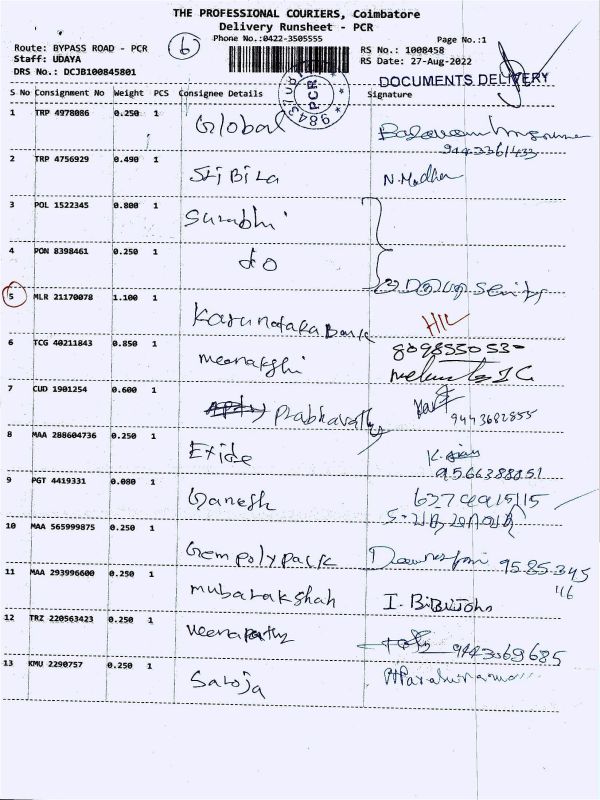 THE PROFESSIONAL COURIERS, Coimbatore
Delivery Runsheet - PCR
Phone No.:0422-3505555
Page No.:1
Route: BYPASS ROAD - PCR
Staff: UDAYA
DRS No.: DCJB100845801
6
RS No.: 1008458
RS Date: 27-Aug-2022
DOCUMENTS DELIVERY
PCR
S No Consignment No Weight PCS Consignee Details Signature
1 TRP 4978086 0.250 1 Global
9443361433
2 TRP 4756929 0.490 1 SHiBiLa N. Madhan
3 POL 1522345 0.800 1 Surabhi
4 PON 8398461 0.250 1 do
5 MLR 21170078 1.100 1 Karunataka Bank H/L
6 TCG 40211843 0.850 1 meenakshi 8098550530
7 CUD 1901254 0.600 1 Prabhavathy
9443682855
8 MAA 288604736 0.250 1 Exide
9566388851
9 PGT 4419331 0.080 1 Ganesh
10 MAA 565999875 0.250 1 Gempolypack 9585345
116
11 MAA 293996600 0.250 1 mubarakshah I. BiBiJohn
12 TRZ 220563423 0.250 1 Veerapathy 9443369685
13 KMU 2290757 0.250 1 Saroja